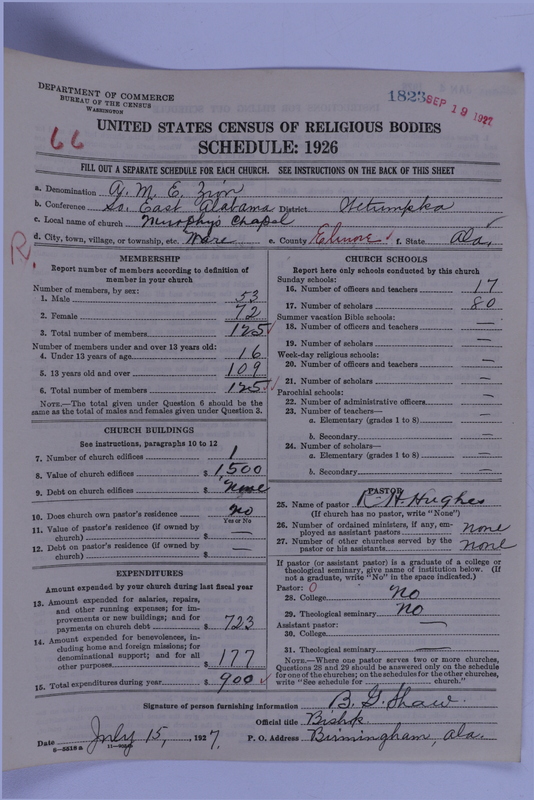 DEPARTMENT OF COMMERCE
BUREAU OF THE CENSUS
WASHINGTON
1823
SEP 19 1927
66
UNITED STATES CENSUS OF RELIGIOUS BODIES
SCHEDULE: 1926
FILL OUT A SEPARATE SCHEDULE FOR EACH CHURCH. SEE INSTRUCTIONS ON THE BACK OF THIS SHEET
a. Denomination A. M. E. Zion
b. Conference So. East Alabama District Wetumpka
c. Local name of church Murphy's Chapel
d. City, town, village, or township, etc. Ware e. County Elmore f. State Ala.
R.
MEMBERSHIP
Report number of members according to definition of
member in your church
Number of members, by sex:
1. Male 53
2. Female 72
3. Total number of members 125
Number of members under and over 13 years old:
4. Under 13 years of age 16
5. 13 years old and over 109
6. Total number of members 125
NOTE.—The total given under Question 6 should be the
same as the total of males and females given under Question 3.
CHURCH BUILDINGS
See instructions, paragraphs 10 to 12
7. Number of church edifices 1
8. Value of church edifices $ 1,500
9. Debt on church edifices $ None
10. Does church own pastor's residence No
Yes or No
11. Value of pastor's residence (if owned by
church) $ —
12. Debt on pastor's residence (if owned by
church) $ —
EXPENDITURES
Amount expended by your church during last fiscal year
13. Amount expended for salaries, repairs,
and other running expenses; for im-
provements or new buildings; and for
payments on church debt $ 723
14. Amount expended for benevolences, in-
cluding home and foreign missions; for
denominational support; and for all
other purposes $ 177
15. Total expenditures during year $ 900
CHURCH SCHOOLS
Report here only schools conducted by this church
Sunday schools:
16. Number of officers and teachers 17
17. Number of scholars 80
Summer vacation Bible schools:
18. Number of officers and teachers —
19. Number of scholars —
Week-day religious schools:
20. Number of officers and teachers —
21. Number of scholars —
Parochial schools:
22. Number of administrative officers —
23. Number of teachers—
a. Elementary (grades 1 to 8) —
b. Secondary —
24. Number of scholars—
a. Elementary (grades 1 to 8) —
b. Secondary —
PASTOR
25. Name of pastor R. H. Hughes
(If church has no pastor, write "None")
26. Number of ordained ministers, if any, em-
ployed as assistant pastors none
27. Number of other churches served by the
pastor or his assistants none
If pastor (or assistant pastor) is a graduate of a college or
theological seminary, give name of institution below. (If
not a graduate, write "No" in the space indicated.)
Pastor: 0
28. College No
29. Theological seminary No
Assistant pastor:
30. College —
31. Theological seminary —
NOTE.—Where one pastor serves two or more churches,
Questions 28 and 29 should be answered only on the schedule
for one of the churches; on the schedules for the other churches,
write "See schedule for church."
Signature of person furnishing information B. G. Shaw
Official title Bishop
Date July 15, 1927. P. O. Address Birmingham, Ala.